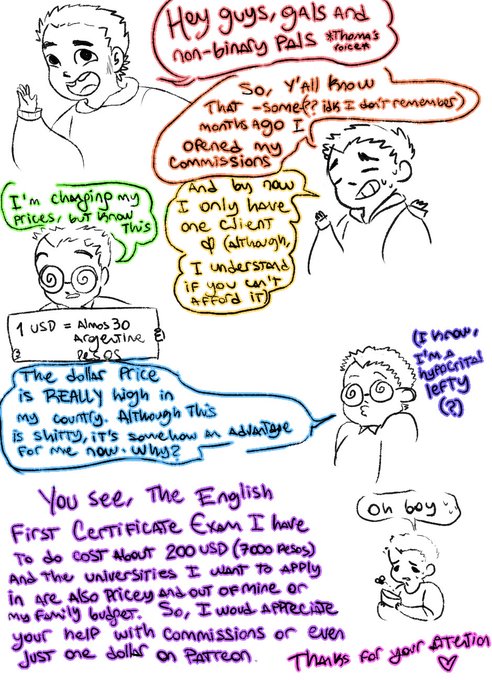 Hey guys, gals and
non-binary pals *Thomas's
voice*
So, y'all know
that -some(?? idk I don't remember)
months ago I
opened my
commissions
And by now
I only have
one client
(although,
I understand
if you can't
afford it)
I'm changing my
prices, but know
this
1 USD = Almos 30
Argentine
pesos
(I know,
I'm a
hypocrital
lefty
(?)
The dollar price
is REALLY high in
my country. Although this
is shitty, it's somehow an advantage
for me now. Why?
Oh boy
You see, the English
First Certificate Exam I have
to do cost about 200 USD (7000 pesos)
and the universities I want to apply
in are also pricey and out of mine or
my family budget. So, I woud appreciate
your help with commissions or even
just one dollar on Patreon.
Thanks for your attention